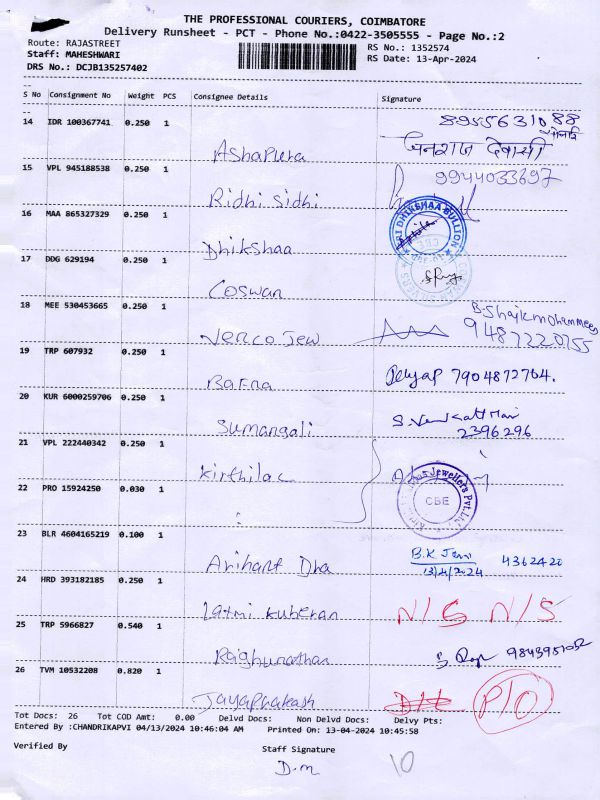 THE PROFESSIONAL COURIERS, COIMBATORE
Delivery Runsheet - PCT - Phone No.:0422-3505555 - Page No.:2
Route: RAJASTREET
Staff: MAHESHWARI
DRS No.: DCJB135257402
RS No.: 1352574
RS Date: 13-Apr-2024
S No Consignment No Weight PCS Consignee Details Signature
14 IDR 100367741 0.250 1 8955631088
Ashapura देवासी
15 VPL 945188538 0.250 1 9944033697
Ridhi sidhi
16 MAA 865327329 0.250 1 DHIKSHAA BULLION
Dhikshaa
17 DDG 629194 0.250 1
Coswan
18 MEE 530453665 0.250 1 B. Shaikmohammeed
Verco Jew 9487220755
19 TRP 607932 0.250 1
Bafna 7904872764.
20 KUR 6000259706 0.250 1
Sumangali 2396296
21 VPL 222440342 0.250 1
Kirthilac Jewellers Pvt.Ltd.
22 PRO 15924250 0.030 1 CBE
:
23 BLR 4604165219 0.100 1
Arihant Dha B.K Jain 4362420
13/4/2024
24 HRD 393182185 0.250 1
Latmi Kuberan N/S N/S
25 TRP 5966827 0.540 1
Raighunathan
26 TVM 10532208 0.820 1
Jayaprakash P/O
Tot Docs: 26 Tot COD Amt: 0.00 Delvd Docs: Non Delvd Docs: Delvy Pts:
Entered By :CHANDRIKAPVI 04/13/2024 10:46:04 AM Printed On: 13-04-2024 10:45:58
Verified By Staff Signature
D.M 10